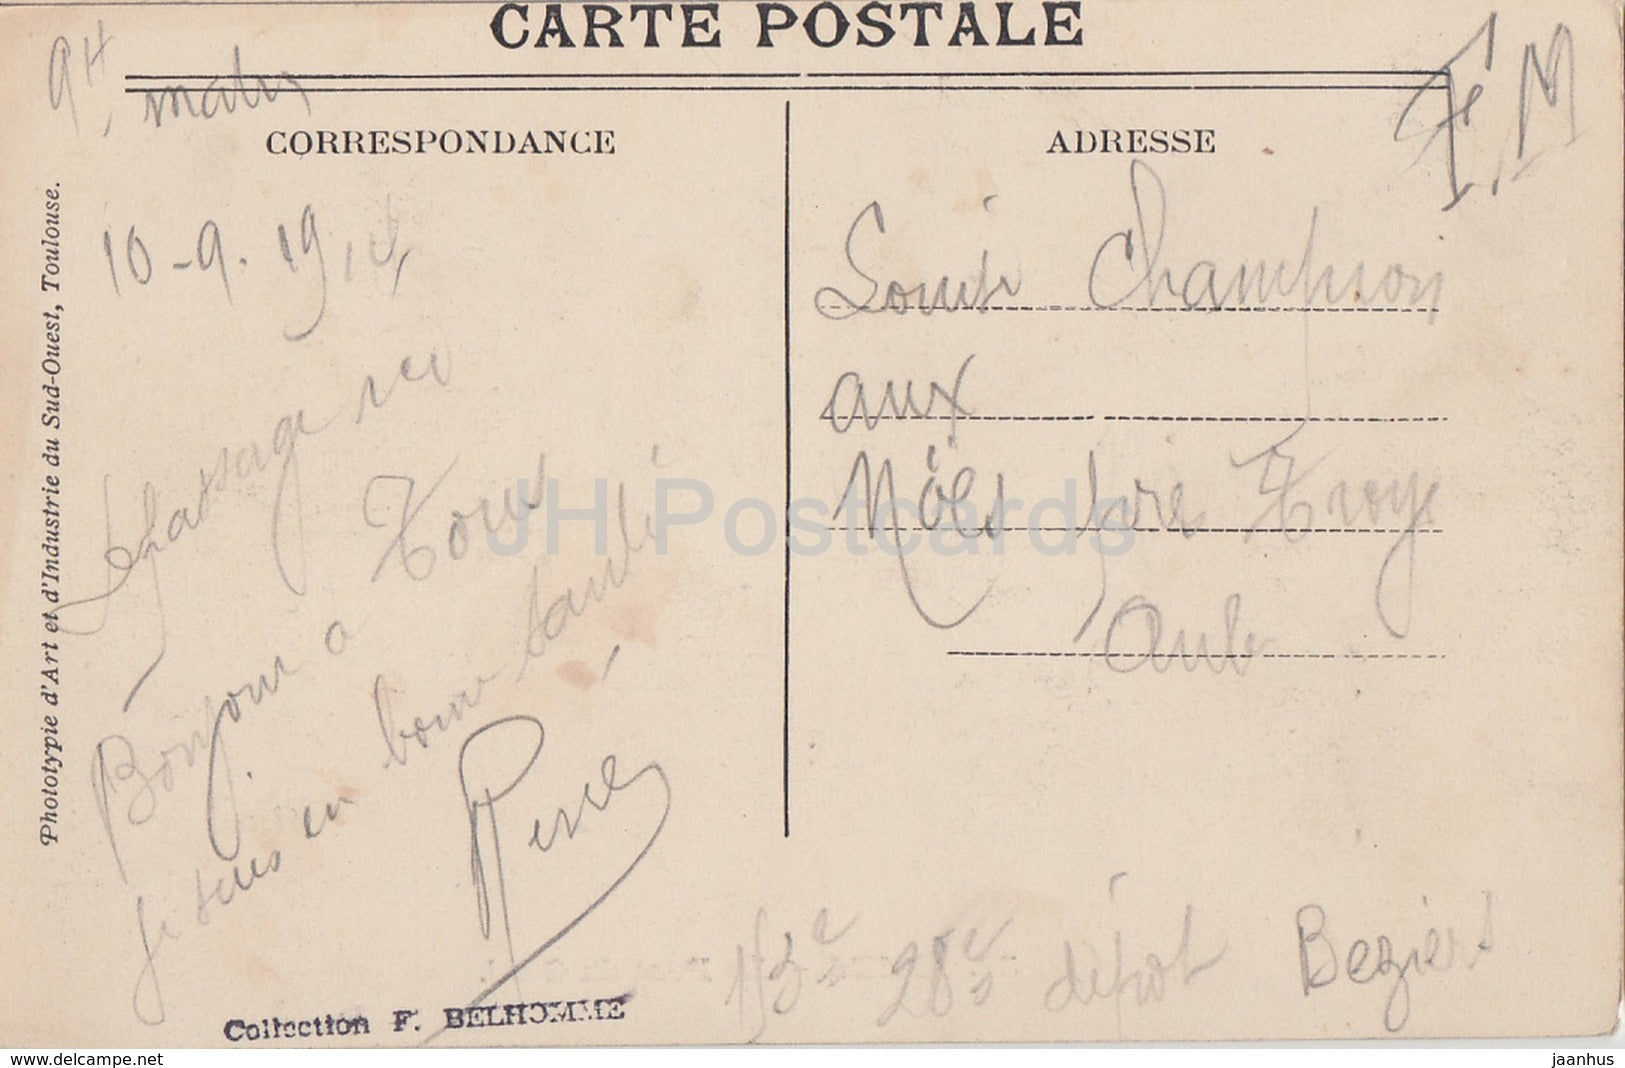 CARTE POSTALE
9H matin
F.M
CORRESPONDANCE
ADRESSE
10-9. 1914
Louis Champion
aux
Nöes pre Troyes
Aube
passage ici
Bonjour a Tous
Je suis en bonne santé
Pierre
28e dépôt Beziers
Collection F. BELHOMME
Phototypie d'Art et d'Industrie du Sud-Ouest, Toulouse.
JH Postcards
delcampe.net
jaanhus